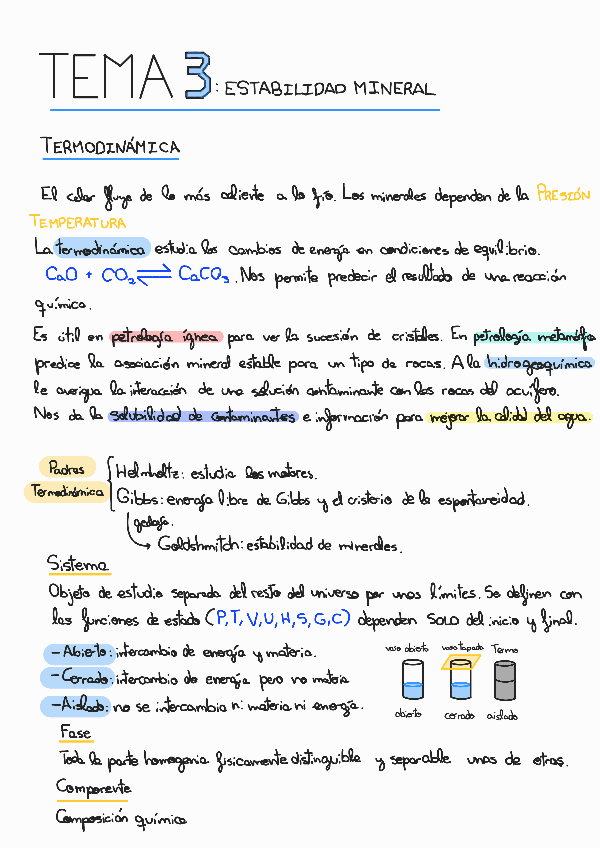 TEMA 3: ESTABILIDAD MINERAL
TERMODINÁMICA
El calor fluye de lo más caliente a lo frío. Los minerales dependen de la PRESIÓN
TEMPERATURA
La termodinámica estudia los cambios de energía en condiciones de equilibrio.
CaO + CO₂ ⇌ CaCO₃. Nos permite predecir el resultado de una reacción
química.
Es útil en petrología ígnea para ver la sucesión de cristales. En petrología metamórfica
predice la asociación mineral estable para un tipo de rocas. A la hidrogeoquímica
le averigua la interacción de una solución contaminante con las rocas del acuífero.
Nos da la solubilidad de contaminantes e información para mejorar la calidad del agua.
Padres
Termodinámica
Helmholtz: estudia los motores.
Gibbs: energía libre de Gibbs y el criterio de la espontaneidad.
geología.
Goldshmitch: estabilidad de minerales.
Sistema
Objeto de estudio separada del resto del universo por unos límites. Se definen con
las funciones de estado (P, T, V, U, H, S, G, C) dependen SOLO del inicio y final.
- Abierto: intercambio de energía y materia.
- Cerrado: intercambio de energía pero no materia
- Aislado: no se intercambia ni materia ni energía.
vaso abierto vaso tapado Termo
abierto cerrado aislado
Fase
Toda la parte homogenia fisicamente distinguible y separable unas de otras.
Componente
Composición química